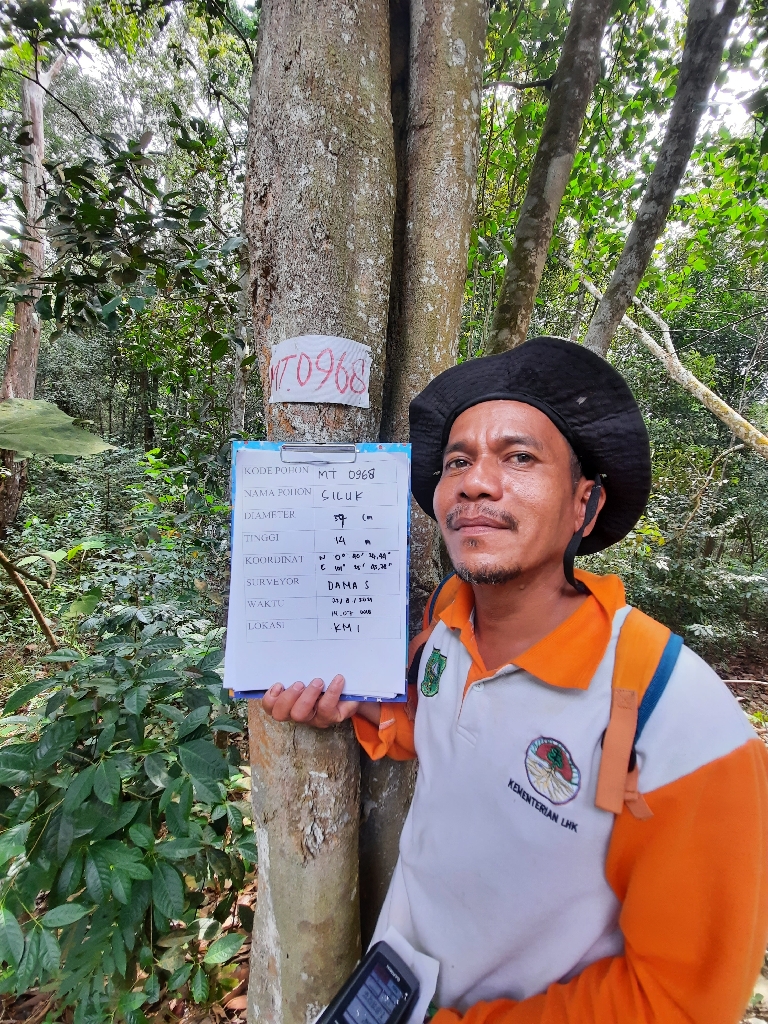 MT. 0968
KODE POHON MT 0968
NAMA POHON SILUK
DIAMETER 57 cm
TINGGI 14 m
KOORDINAT N 0° 40'
E 101°
SURVEYOR DAMA S
WAKTU
14.07 WIB
LOKASI KM 1
KEMENTERIAN LHK